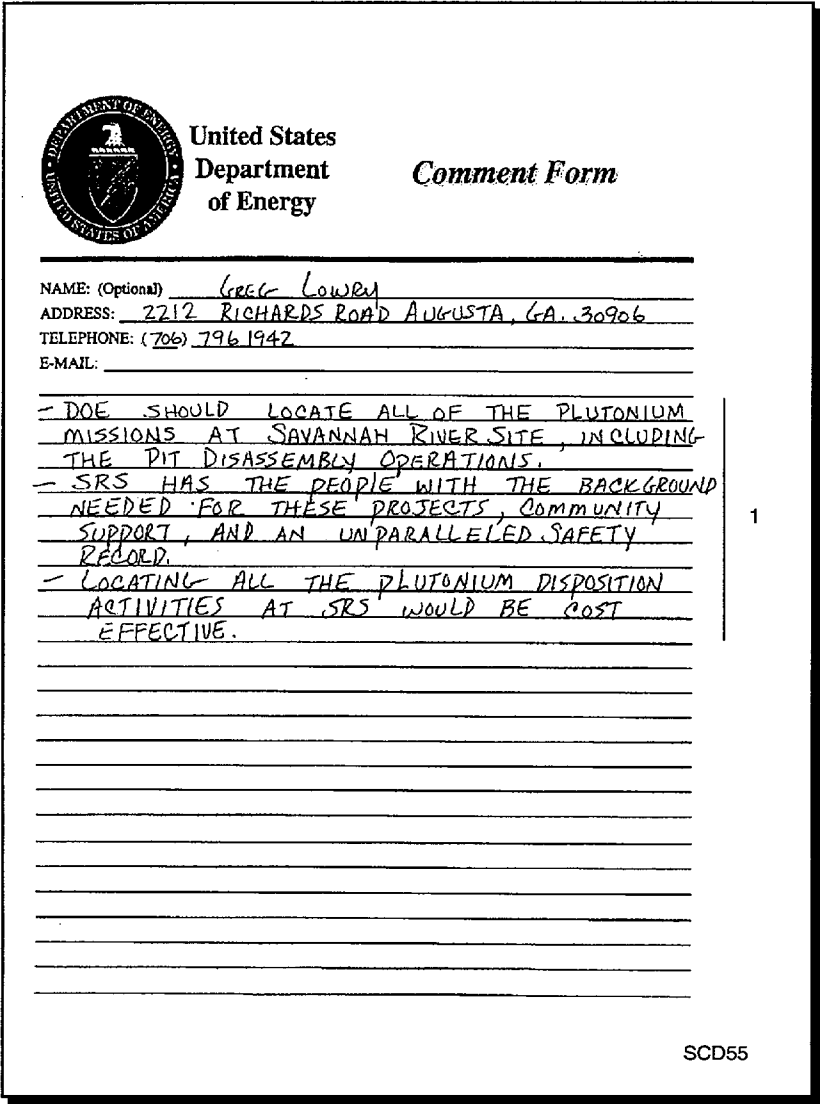 DEPARTMENT OF ENERGY
UNITED STATES OF AMERICA
United States
Department
of Energy
Comment Form
NAME: (Optional) GREG LOWRY
ADDRESS: 2212 RICHARDS ROAD AUGUSTA, GA. 30906
TELEPHONE: (706) 796 1942
E-MAIL:
- DOE SHOULD LOCATE ALL OF THE PLUTONIUM
MISSIONS AT SAVANNAH RIVER SITE, INCLUDING
THE PIT DISASSEMBLY OPERATIONS.
- SRS HAS THE PEOPLE WITH THE BACKGROUND
NEEDED FOR THESE PROJECTS, COMMUNITY
SUPPORT, AND AN UNPARALLELED SAFETY
RECORD.
- LOCATING ALL THE PLUTONIUM DISPOSITION
ACTIVITIES AT SRS WOULD BE COST
EFFECTIVE.
1
SCD55